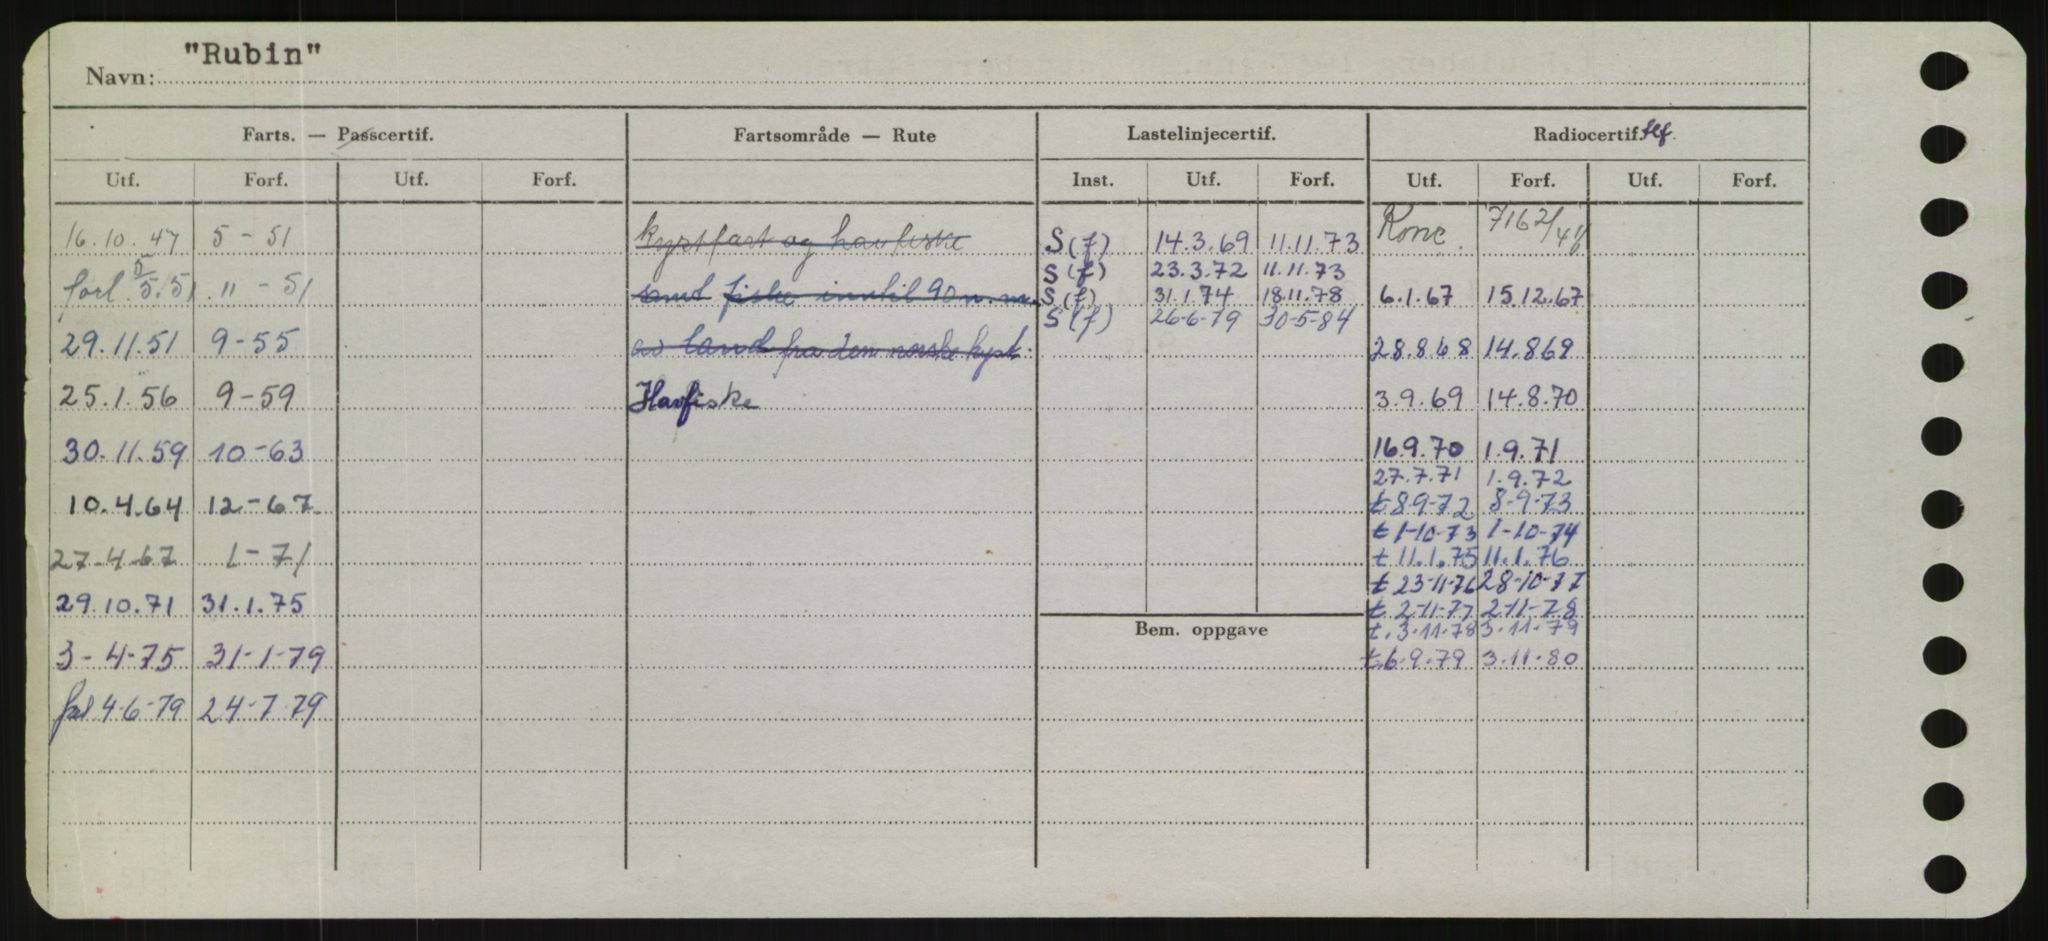 "Rubin"
Navn:
Farts. — Passcertif. Fartsområde — Rute Lastelinjecertif. Radiocertif. tlf.
Utf. Forf. Utf. Forf. Inst. Utf. Forf. Utf. Forf. Utf. Forf.
16.10.47 5-51 kystfart og havfiske S(f) 14.3.69 11.11.73 Konc. 7162/
S(f) 23.3.72 11.11.73
forl. 5.51 11-51 samt fiske inntil 90 n.m. S(f) 31.1.74 18.11.78 6.1.67 15.12.67
S(f) 26-6-79 30-5-84
29.11.51 9-55 av land fra den norske kyst. 28.8.68 14.8.69
25.1.56 9-59 Havfiske 3.9.69 14.8.70
30.11.59 10-63 16.9.70 1.9.71
27.7.71 1.9.72
10.4.64 12-67 t 8-9-72 8-9-73
t 1-10-73 1-10-74
27-4-67 1-71 t 11.1.75 11.1.76
t 23-11-76 28-10-77
29.10.71 31.1.75 t. 2-11-77 2-11-78
Bem. oppgave t. 3-11-78 3-11-79
3-4-75 31-1-79 t. 6-9-79 3-11-80
forl 4-6-79 24-7-79